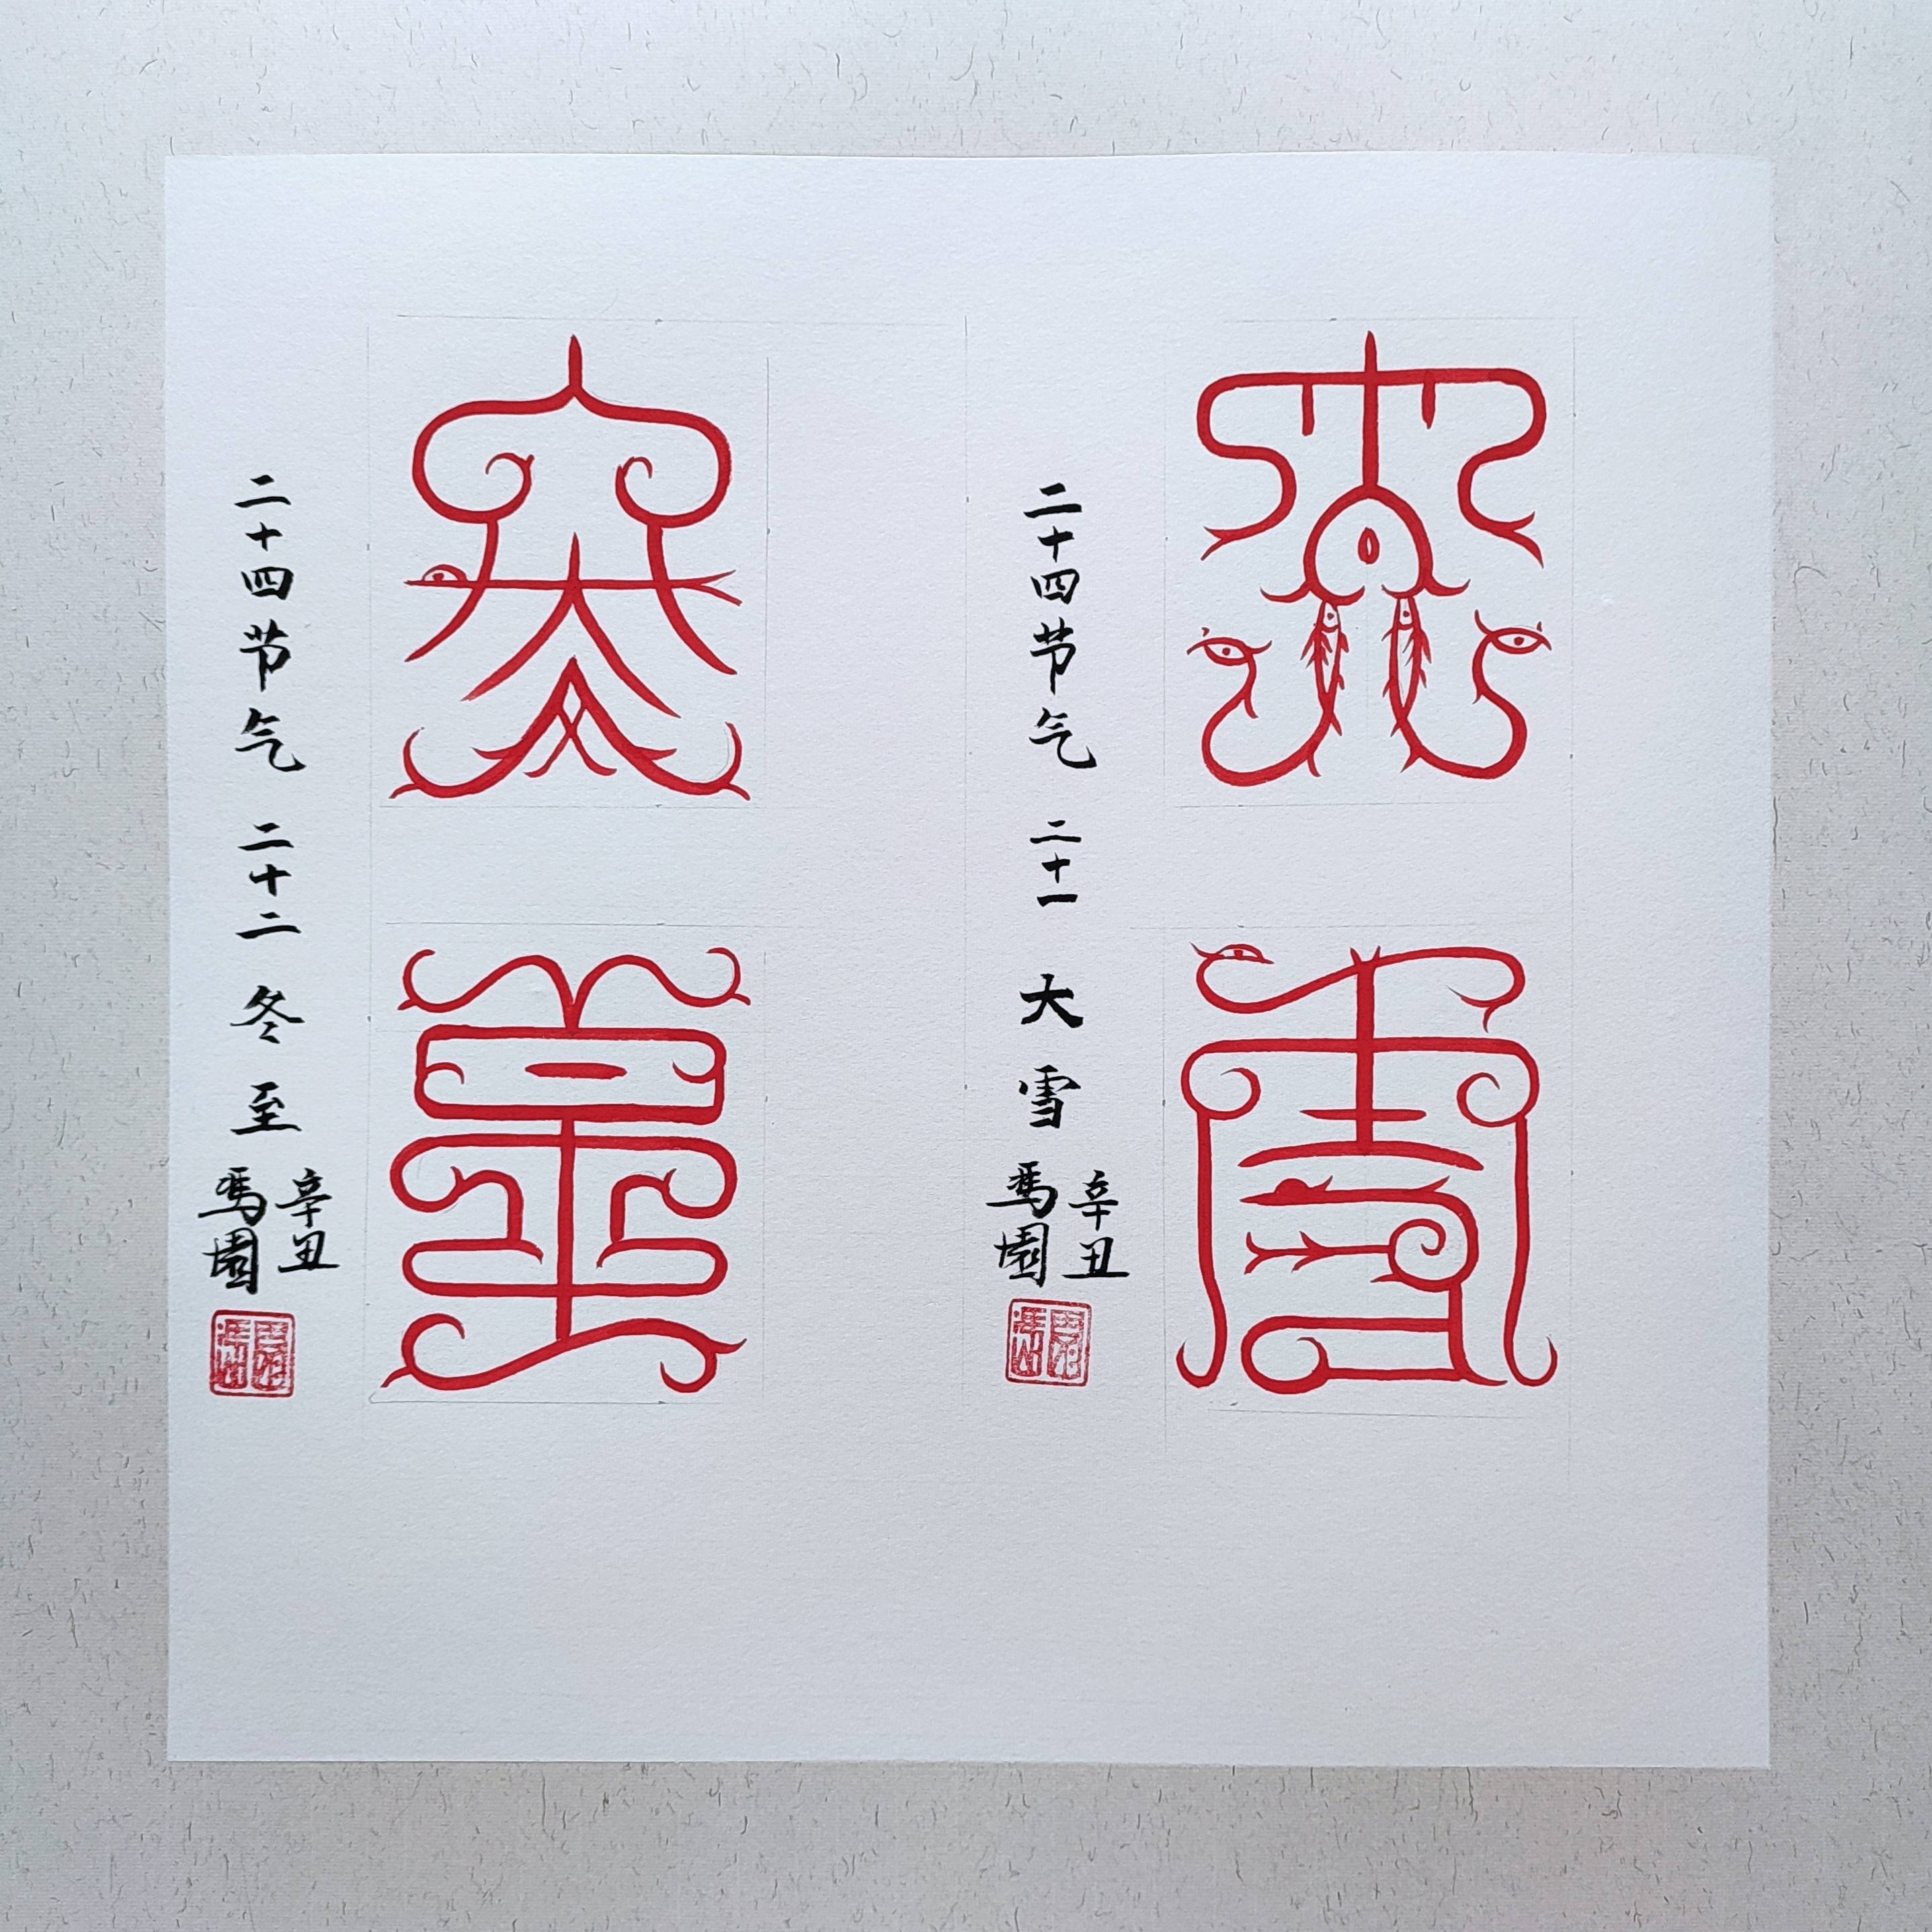 大雪
二十四节气 二十一 大雪
辛丑
冯園
冬至
二十四节气 二十二 冬至
辛丑
冯園